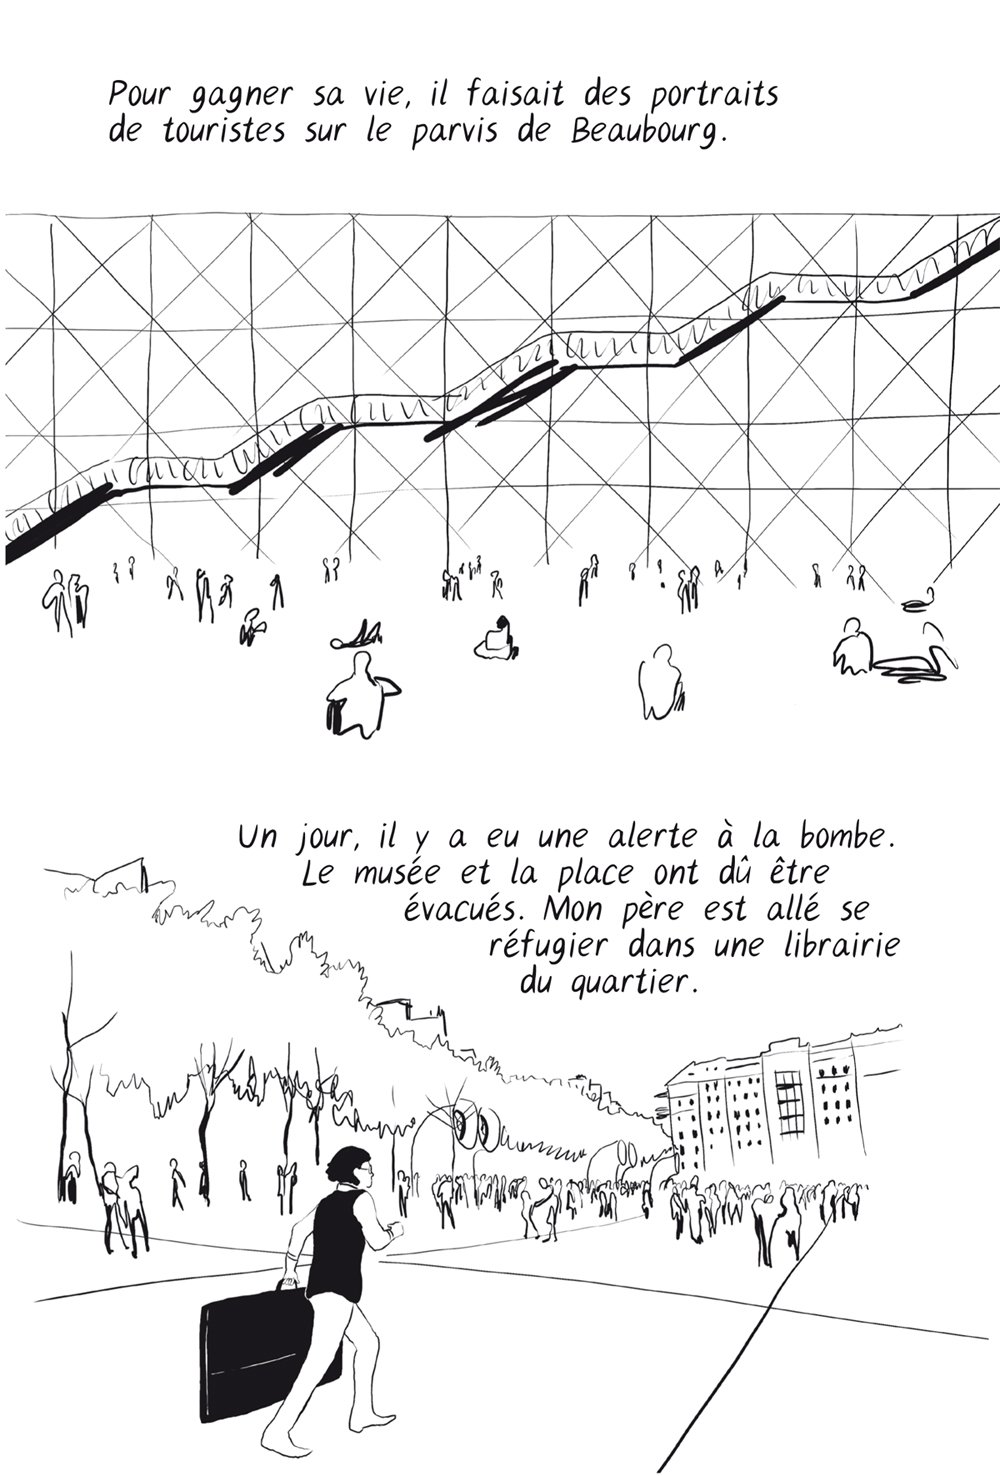 Pour gagner sa vie, il faisait des portraits
de touristes sur le parvis de Beaubourg.
Un jour, il y a eu une alerte à la bombe.
Le musée et la place ont dû être
évacués. Mon père est allé se
réfugier dans une librairie
du quartier.